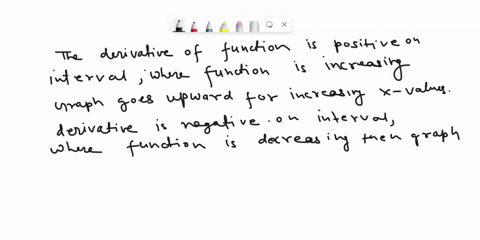 The derivative of function is positive on
interval, where function is increasing
graph goes upward for increasing x-values.
derivative is negative on interval,
where function is decreasing then graph